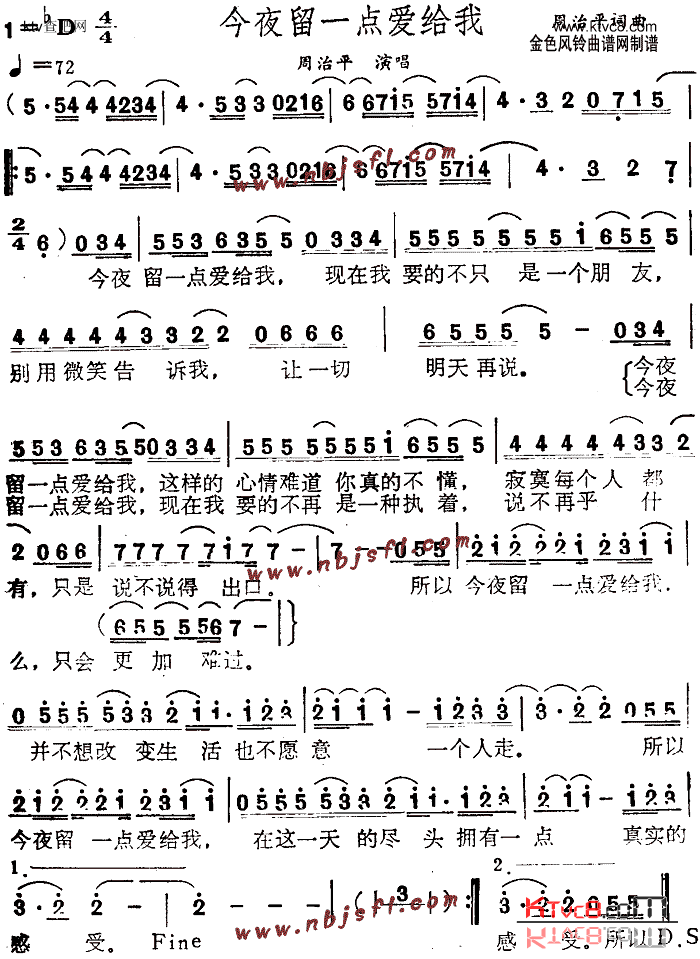 1=♭D 4/4 今夜留一点爱给我 周治平词曲
www.ktvc8.com
金色风铃曲谱网制谱
♩=72 周治平 演唱
(5·544 4234 | 4·533 0216 | 66715 5714 | 4·32 0 715 |
5·544 4234 | 4·533 0216 | 66715 5714 | 4·3 2 7 |
www.nbjsfl.com
2/4 6) 034 | 553 6355 0334 | 555 5551 6555 |
今夜 留一点爱给我, 现在我 要的不只 是一个朋 友,
4444 4332 2 0666 | 6555 5 5 - 034 |
别用微笑告 诉我, 让一切 明天再说。 今夜
今夜
553 6355 0334 | 555 5551 6555 | 4444 4433 2
留一点爱给我,这样的 心情难道 你真的不 懂, 寂寞每个人 都
留一点爱给我,现在我 要的不再 是一种执 着, 说不再乎 什
2 066 | 777 7717 7 - | 7 - 055 | 212 221 2311 |
www.nbjsfl.com
有,只是 说不说得 出口。 所以 今夜留 一点爱给我.
(655 5567 -)
么,只会 更加 难过。
0555 5332 11·123 | 211 1 - 1233 | 3·2 2 055 |
并不想改 变生 活也不愿 意 一个人走。 所以
212 221 2311 | 0555 5332 11·122 | 211 1 - 555 |
今夜留 一点爱给我, 在这一天 的尽 头 拥有一 点 真实的
1. 2.
3·2 2 - | 2 - - - (3) :‖ 3·2 2 -
www.nbjsfl.com
KTVC8.COM
感 受。Fine 感 受。所以D.S